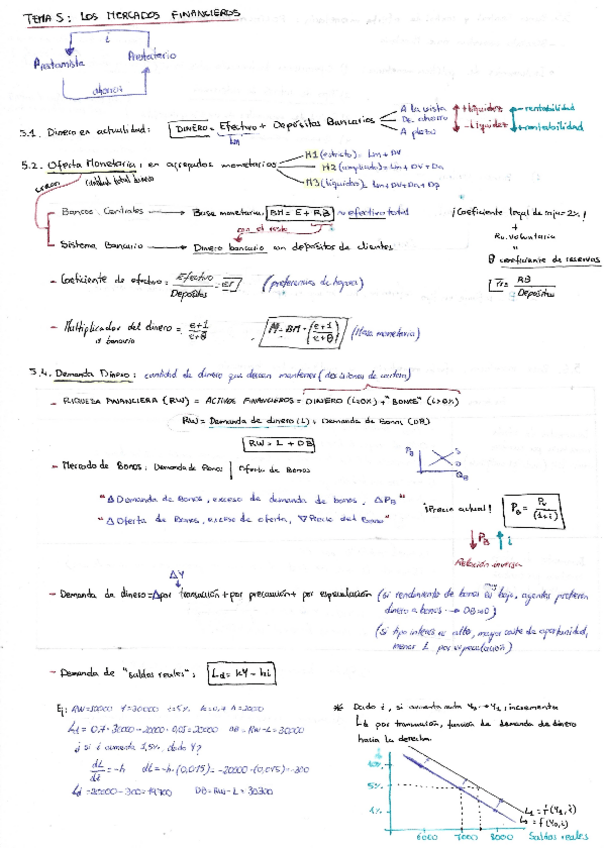 TEMA 5: LOS MERCADOS FINANCIEROS
i
Prestamista Prestatario
ahorros
5.1. Dinero en actualidad: DINERO = Efectivo + Depósitos Bancarios
Lm
A la vista
De ahorro
A plazo
+ liquidez - rentabilidad
- liquidez + rentabilidad
5.2. Oferta Monetaria: en agregados monetarios
M1 (estricto) = Lm + DV
M2 (ampliado) = Lm + DV + DA
M3 (liquidez) = Lm + DV + DA + DP
crean
cantidad total dinero
Bancos Centrales → Base monetaria, BM = E + RB ≈ efectivo total
Sistema Bancario → Dinero bancario con depósitos de clientes
¡Coeficiente legal de caja = 2%!
+
Rv. Voluntaria
"
θ coeficiente de reservas
RB
Depósitos
- Coeficiente de efectivo = Efectivo / Depósitos (preferencias de hogares)
- Multiplicador del dinero = e+1 / e+θ M = BM · (e+1 / e+θ) (Masa monetaria)
bancario
5.4. Demanda Dinero: cantidad de dinero que desean mantener (decisiones de cartera)
- RIQUEZA FINANCIERA (RW) = ACTIVOS FINANCIEROS = DINERO (i=0%) + "BONOS" (i>0%)
RW = Demanda de dinero (L) + Demanda de Bonos (DB)
RW = L + DB
- Mercado de Bonos: Demanda de Bonos | Oferta de Bonos
PB
S
D
QB
"Δ Demanda de Bonos, exceso de demanda de bonos, ΔPB"
"Δ Oferta de Bonos, exceso de oferta, ∇ Precio del Bono"
¡Precio actual! PB = Pv / (1+i)
↓PB ↑i
Relación inversa
ΔY
- Demanda de dinero = Δpor transacción + por precaución + por especulación (si rendimiento de bonos es muy bajo, agentes prefieren
dinero a bonos → DB=0)
(si tipo interés es alto, mayor coste de oportunidad,
menor L por especulación)
- Demanda de "saldos reales": Ld = kY - hi
Ej: RW=50000 Y=30000 i=5% k=0,7 h=20000
Ld = 0,7 · 30000 - 20000 · 0,05 = 20000 DB = RW - L = 30000
¿si i aumenta 1,5%, dado Y?
dL/di = -h dL = -h · (0,015) = -20000 · (0,015) = -300
Ld = 20000 - 300 = 19700 DB = RW - L = 30300
* Dado i, si aumenta renta Y0 → Y1, incrementa
Ld por transacción, función de demanda de dinero
hacia la derecha.
5%
4%
L1 = f(Y1, i)
L0 = f(Y0, i)
6000 7000 8000 Saldos reales